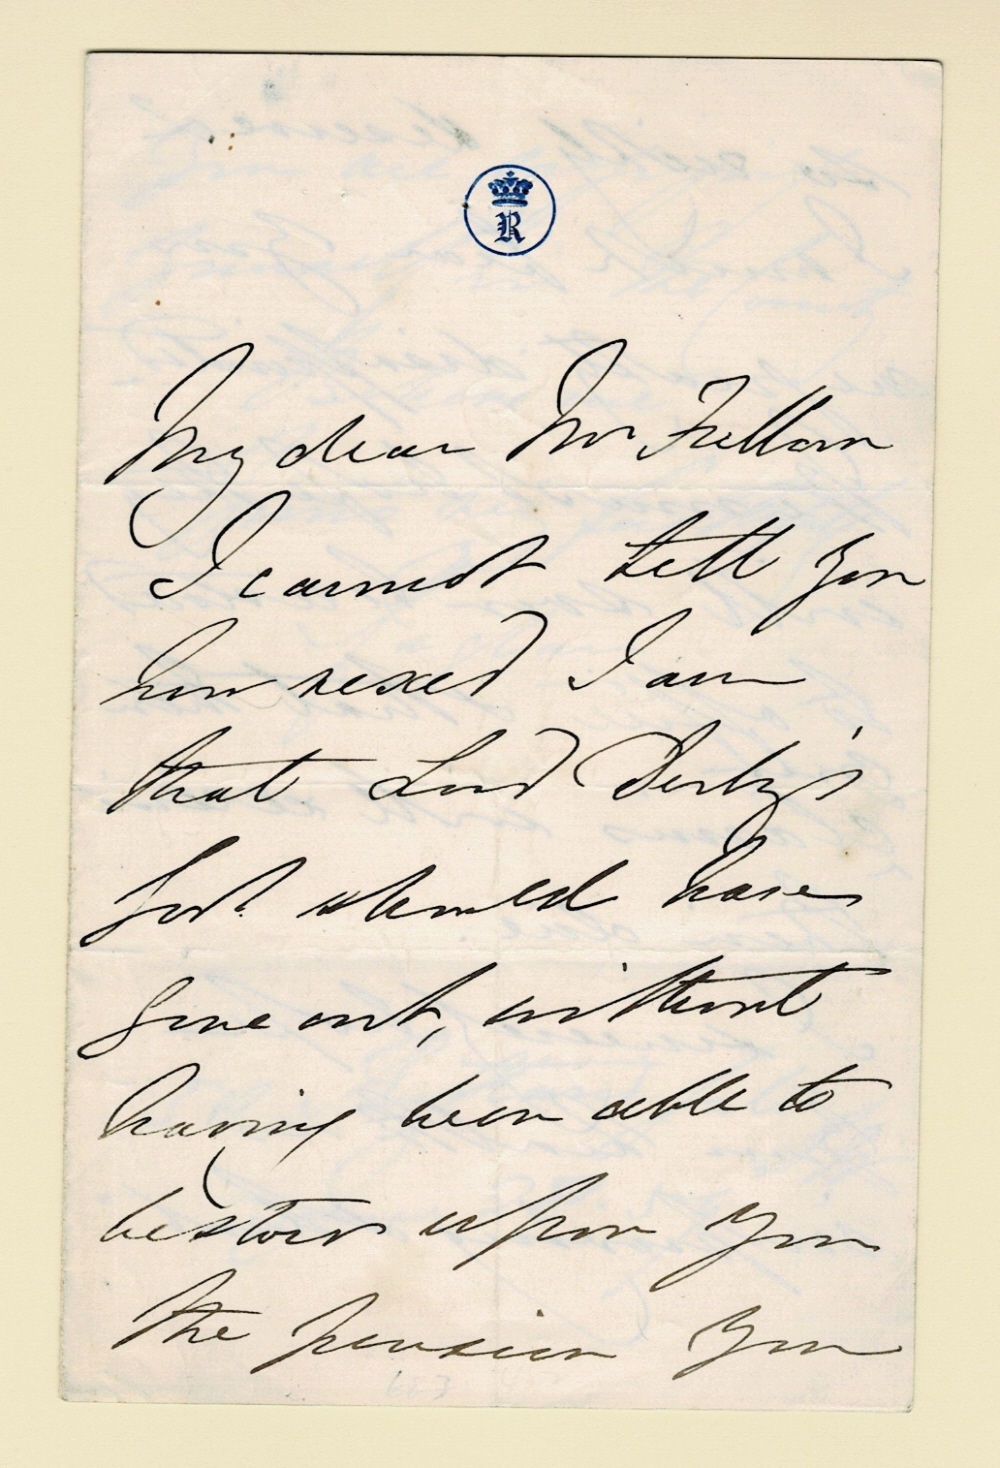 R
My dear Mr Fullom
I cannot tell you
how vexed I am
that Lord Derby's
Govt. should have
gone out, without
having been able to
bestow upon you
the pension you